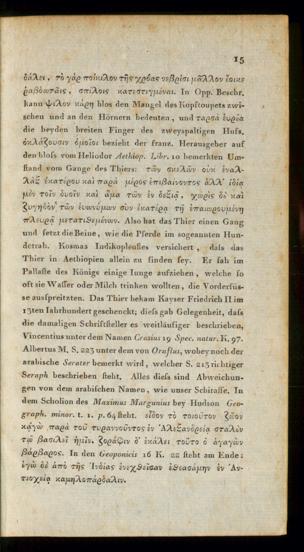 15
δάλει, τὸ γὰρ ποίκιλον τῆς χρόας νεβρίσι μᾶλλον ἔοικε
ῥαβδωταῖς, σπίλοις κατεστιγμέναι. In Opp. Beschr.
kann ψιλὸν κάρη blos den Mangel des Kopftoupets zwi-
schen und an den Hörnern bedeuten, und ταρσὰ εὐρέα
die beyden breiten Finger des zweyspaltigen Hufs.
ὀκλάζουσιν ὁμοῖοι bezieht der franz. Herausgeber auf
den blofs vom Heliodor Aethiop. Libr. 10 bemerkten Um-
stand vom Gange des Thiers: τῶν σκελῶν οὐκ ἐναλ-
λὰξ ἑκατέρου καὶ παρὰ μέρος ἐπιβαίνοντος ἀλλ' ἰδίᾳ
μὲν τοῖν δυοῖν καὶ ἅμα τῶν ἐν δεξιᾷ, χωρὶς δὲ καὶ
ζυγηδὸν τῶν εὐωνύμων σὺν ἑκατέρᾳ τῇ ἐπαιωρουμένῃ
πλευρᾷ μετατιθεμένων. Also hat das Thier einen Gang
und setzt die Beine, wie die Pferde im sogenannten Hun-
detrab. Kosmas Indikopleustes versichert, dafs das
Thier in Aethiopien allein zu finden sey. Er sah im
Pallaste des Königs einige Iunge aufziehen, welche so
oft sie Wasser oder Milch trinken wollten, die Vorderfüs-
se ausspreitzten. Das Thier bekam Kayser Friedrich II im
13ten Iahrhundert geschenckt; diefs gab Gelegenheit, dafs
die damaligen Schriftsteller es weitläufiger beschrieben,
Vincentius unter dem Namen Crasius 19 Spec. natur. K. 97.
Albertus M. S. 223 unter dem von Oraflus, wobey noch der
arabische Serater bemerkt wird, welcher S. 213 richtiger
Seraph beschrieben steht. Alles diefs sind Abweichun-
gen von dem arabischen Namen, wie unser Schiraffe. In
dem Scholion des Maximus Margunius bey Hudson Geo-
graph. minor. t. 1. p. 64 steht. εἶδον τὸ τοιοῦτον ζῶον
κᾀγὼ παρὰ τοῦ τυραννοῦντος ἐν Ἀλεξανδρείᾳ σταλὲν
τῷ βασιλεῖ ἡμῖν. ζοράφιν δ' ἐκάλει τοῦτο ὁ ἀγαγὼν
βάρβαρος. In den Geoponicis 16 K. 22 steht am Ende:
ἐγὼ δὲ ἀπὸ τῆς Ἰνδίας ἐνεχθεῖσαν ἐθεασάμην ἐν Ἀν-
τιοχείᾳ καμηλοπάρδαλιν.